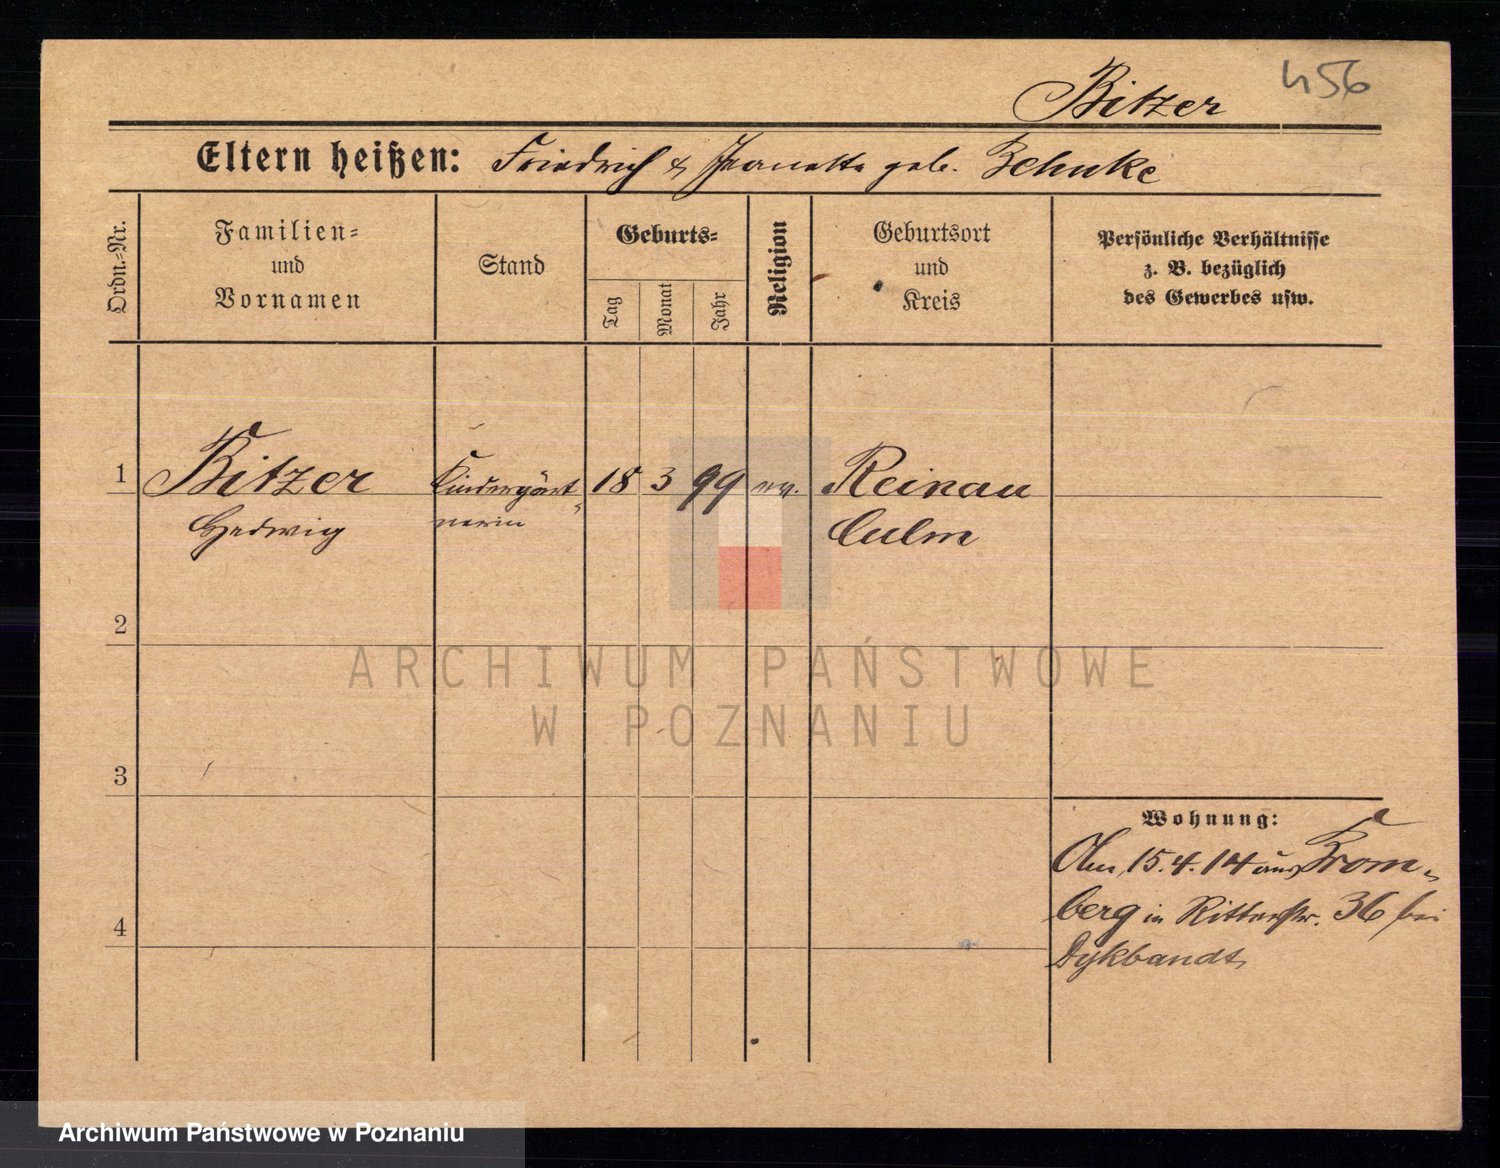 Bitzer 456
Eltern heißen: Friedrich & Jeanette geb. Zehnke
Ordn.-Nr.
Familien-
und
Vornamen
Stand
Geburts-
Tag
Monat
Jahr
Religion
Geburtsort
und
Kreis
Persönliche Verhältnisse
z. B. bezüglich
des Gewerbes usw.
1 Bitzer Kindergärt- 18 3 99 ev. Reinau
Hedwig nerin Culm
2
ARCHIWUM PAŃSTWOWE
W POZNANIU
3
Wohnung:
Am 15.4.14 aus Brom-
4 berg in Ritterstr. 36 bei
Dykbandt
Archiwum Państwowe w Poznaniu